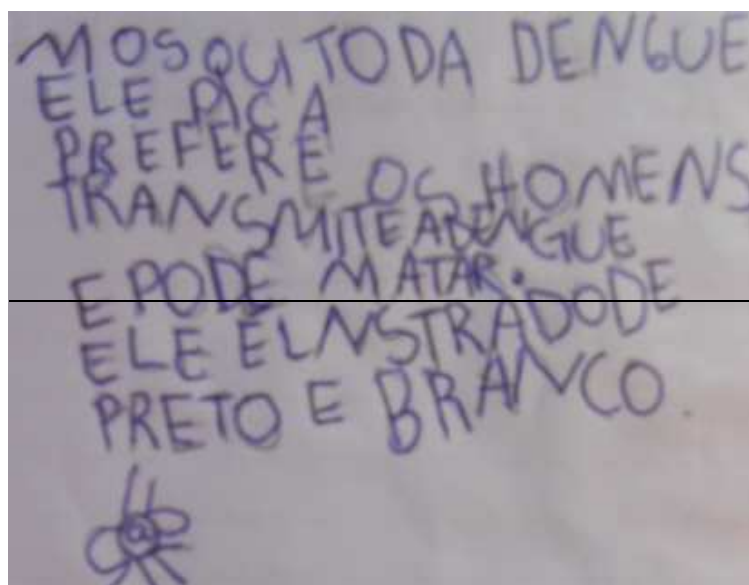 MOSQUITODA DENGUE
ELE PICA
PREFERE OS HOMENS
TRANSMITEADENGUE
E PODE MATAR.
ELE ÉLNSTRADODE
PRETO E BRANCO.